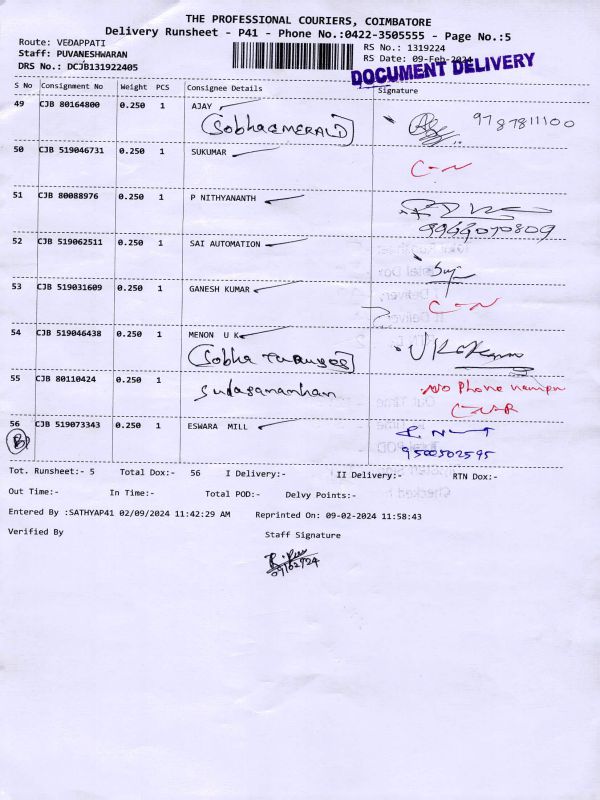 THE PROFESSIONAL COURIERS, COIMBATORE
Delivery Runsheet - P41 - Phone No.:0422-3505555 - Page No.:5
Route: VEDAPPATI
RS No.: 1319224
Staff: PUVANESHWARAN
RS Date: 09-Feb-2024
DRS No.: DCJB131922405
DOCUMENT DELIVERY
S No Consignment No Weight PCS Consignee Details Signature
49 CJB 80164800 0.250 1 AJAY
(Sobha EMERALD) 9787811100
50 CJB 519046731 0.250 1 SUKUMAR
C-N
51 CJB 80088976 0.250 1 P NITHYANANTH
9966070809
52 CJB 519062511 0.250 1 SAI AUTOMATION
53 CJB 519031609 0.250 1 GANESH KUMAR
C-N
54 CJB 519046438 0.250 1 MENON U K
(Sobha
55 CJB 80110424 0.250 1
No Phone
56 CJB 519073343 0.250 1 ESWARA MILL
9500502595
Tot. Runsheet:- 5 Total Dox:- 56 I Delivery:- II Delivery:- RTN Dox:-
Out Time:- In Time:- Total POD:- Delvy Points:-
Entered By :SATHYAP41 02/09/2024 11:42:29 AM Reprinted On: 09-02-2024 11:58:43
Verified By Staff Signature
09/02/24